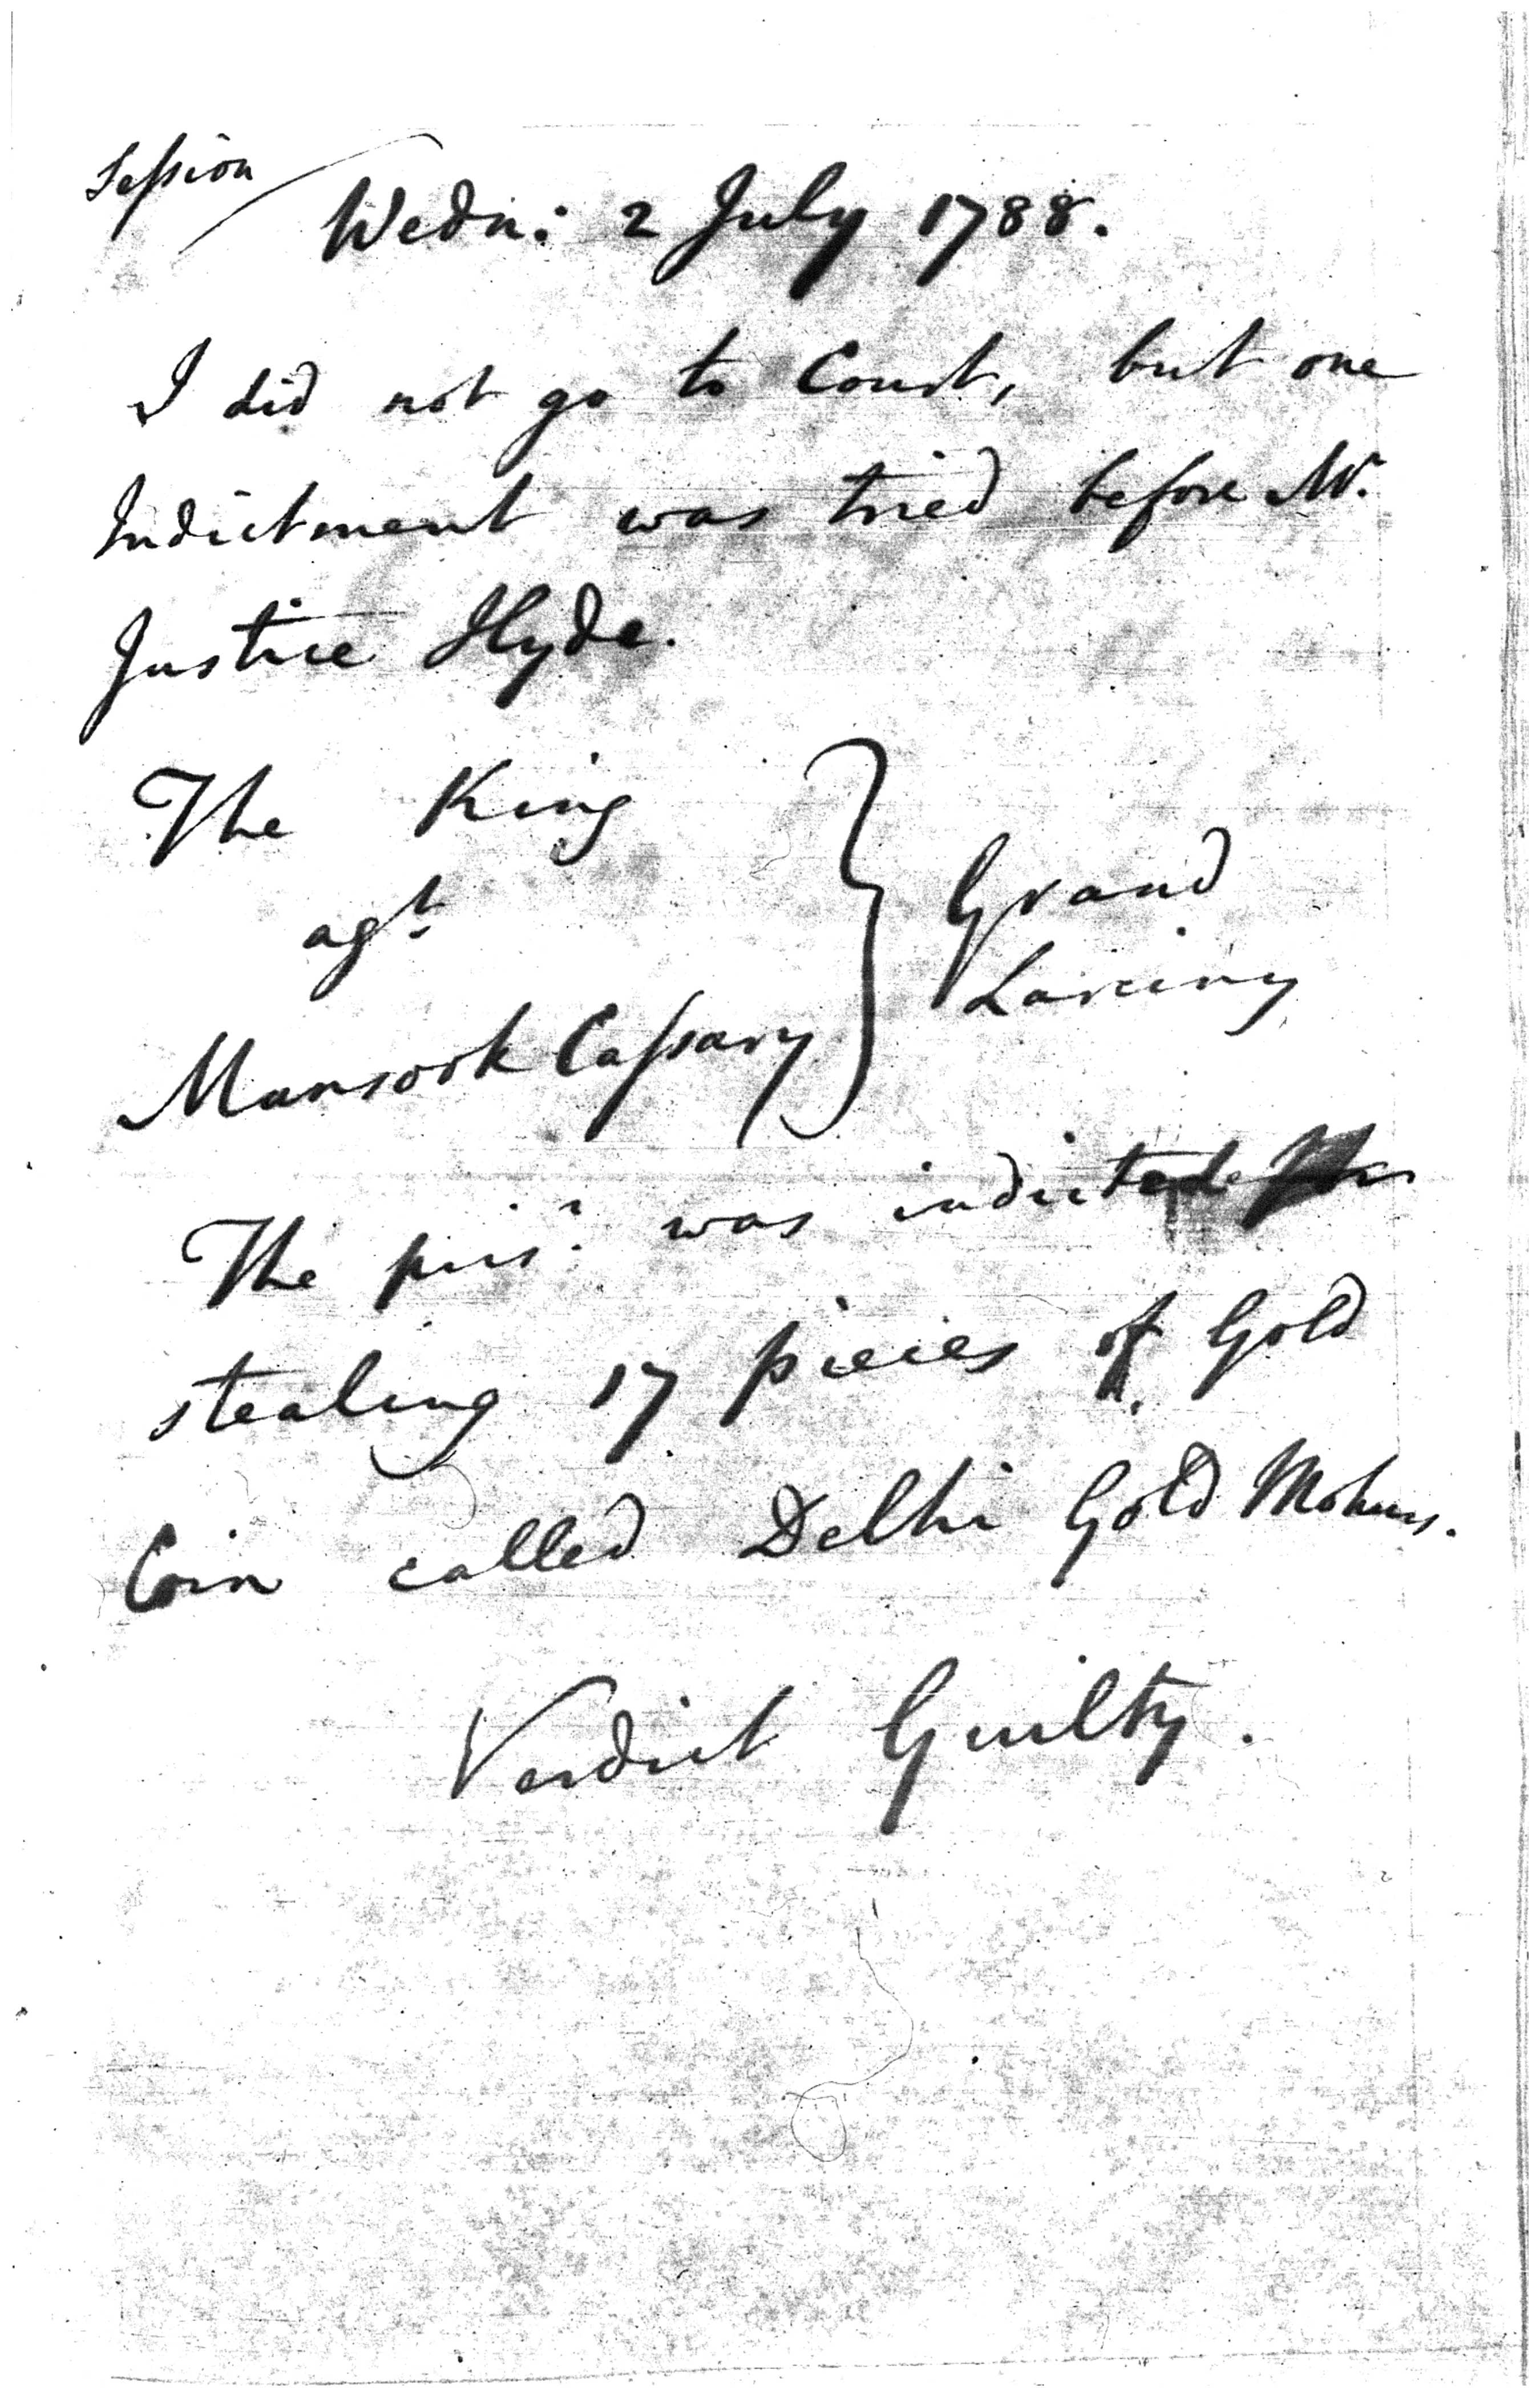 Session
Wedn: 2 July 1788.
I did not go to Court, but one
Indictment was tried before Mr.
Justice Hyde.
The King
agt.
Mansook Cassary
Grand
Larciny
The prisr. was indicted for
stealing 17 pieces of Gold
Coin called Delhi Gold Mohurs.
Verdict Guilty.